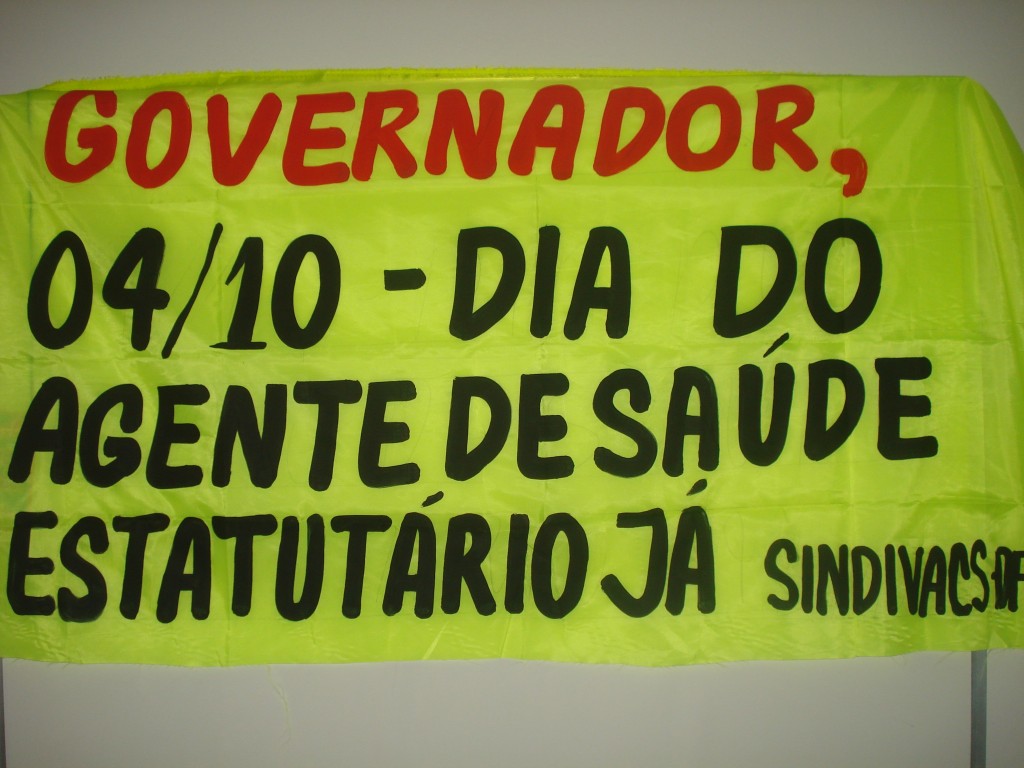 GOVERNADOR,
04/10 - DIA DO
AGENTE DE SAÚDE
ESTATUTÁRIO JÁ SINDIVACS-DF